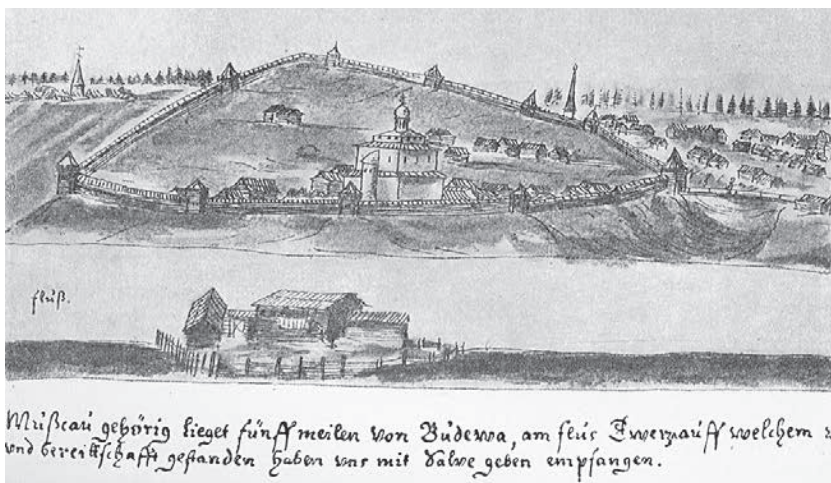 fluß.
Mußcau gehörig lieget fünff meilen von Budewa, am flus Twerza auff welchem
und bereittschafft gestanden haben uns mit Salve geben empfangen.